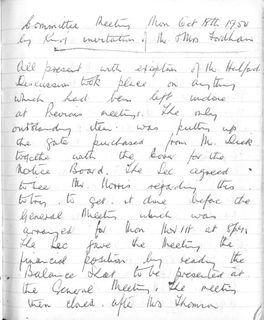 Committee Meeting Mon Oct 18th 1950
by kind invitation of Mr & Mrs Fordham
All present with exception of Mr Halford
Discussion took place on anything
which had been left undone
at Previous meetings. The only
outstanding item was putting up
the gate purchased from Mr
together with the door for the
Notice Board. The Sec agreed
to see Mr Norris regarding this
to try to get it done before the
General Meeting which was
arranged for Mon Nov 1st at 8pm.
The Sec gave the Meeting the
financial position by reading the
Balance Sheet to be presented at
the General Meeting. The meeting
then closed after Mrs